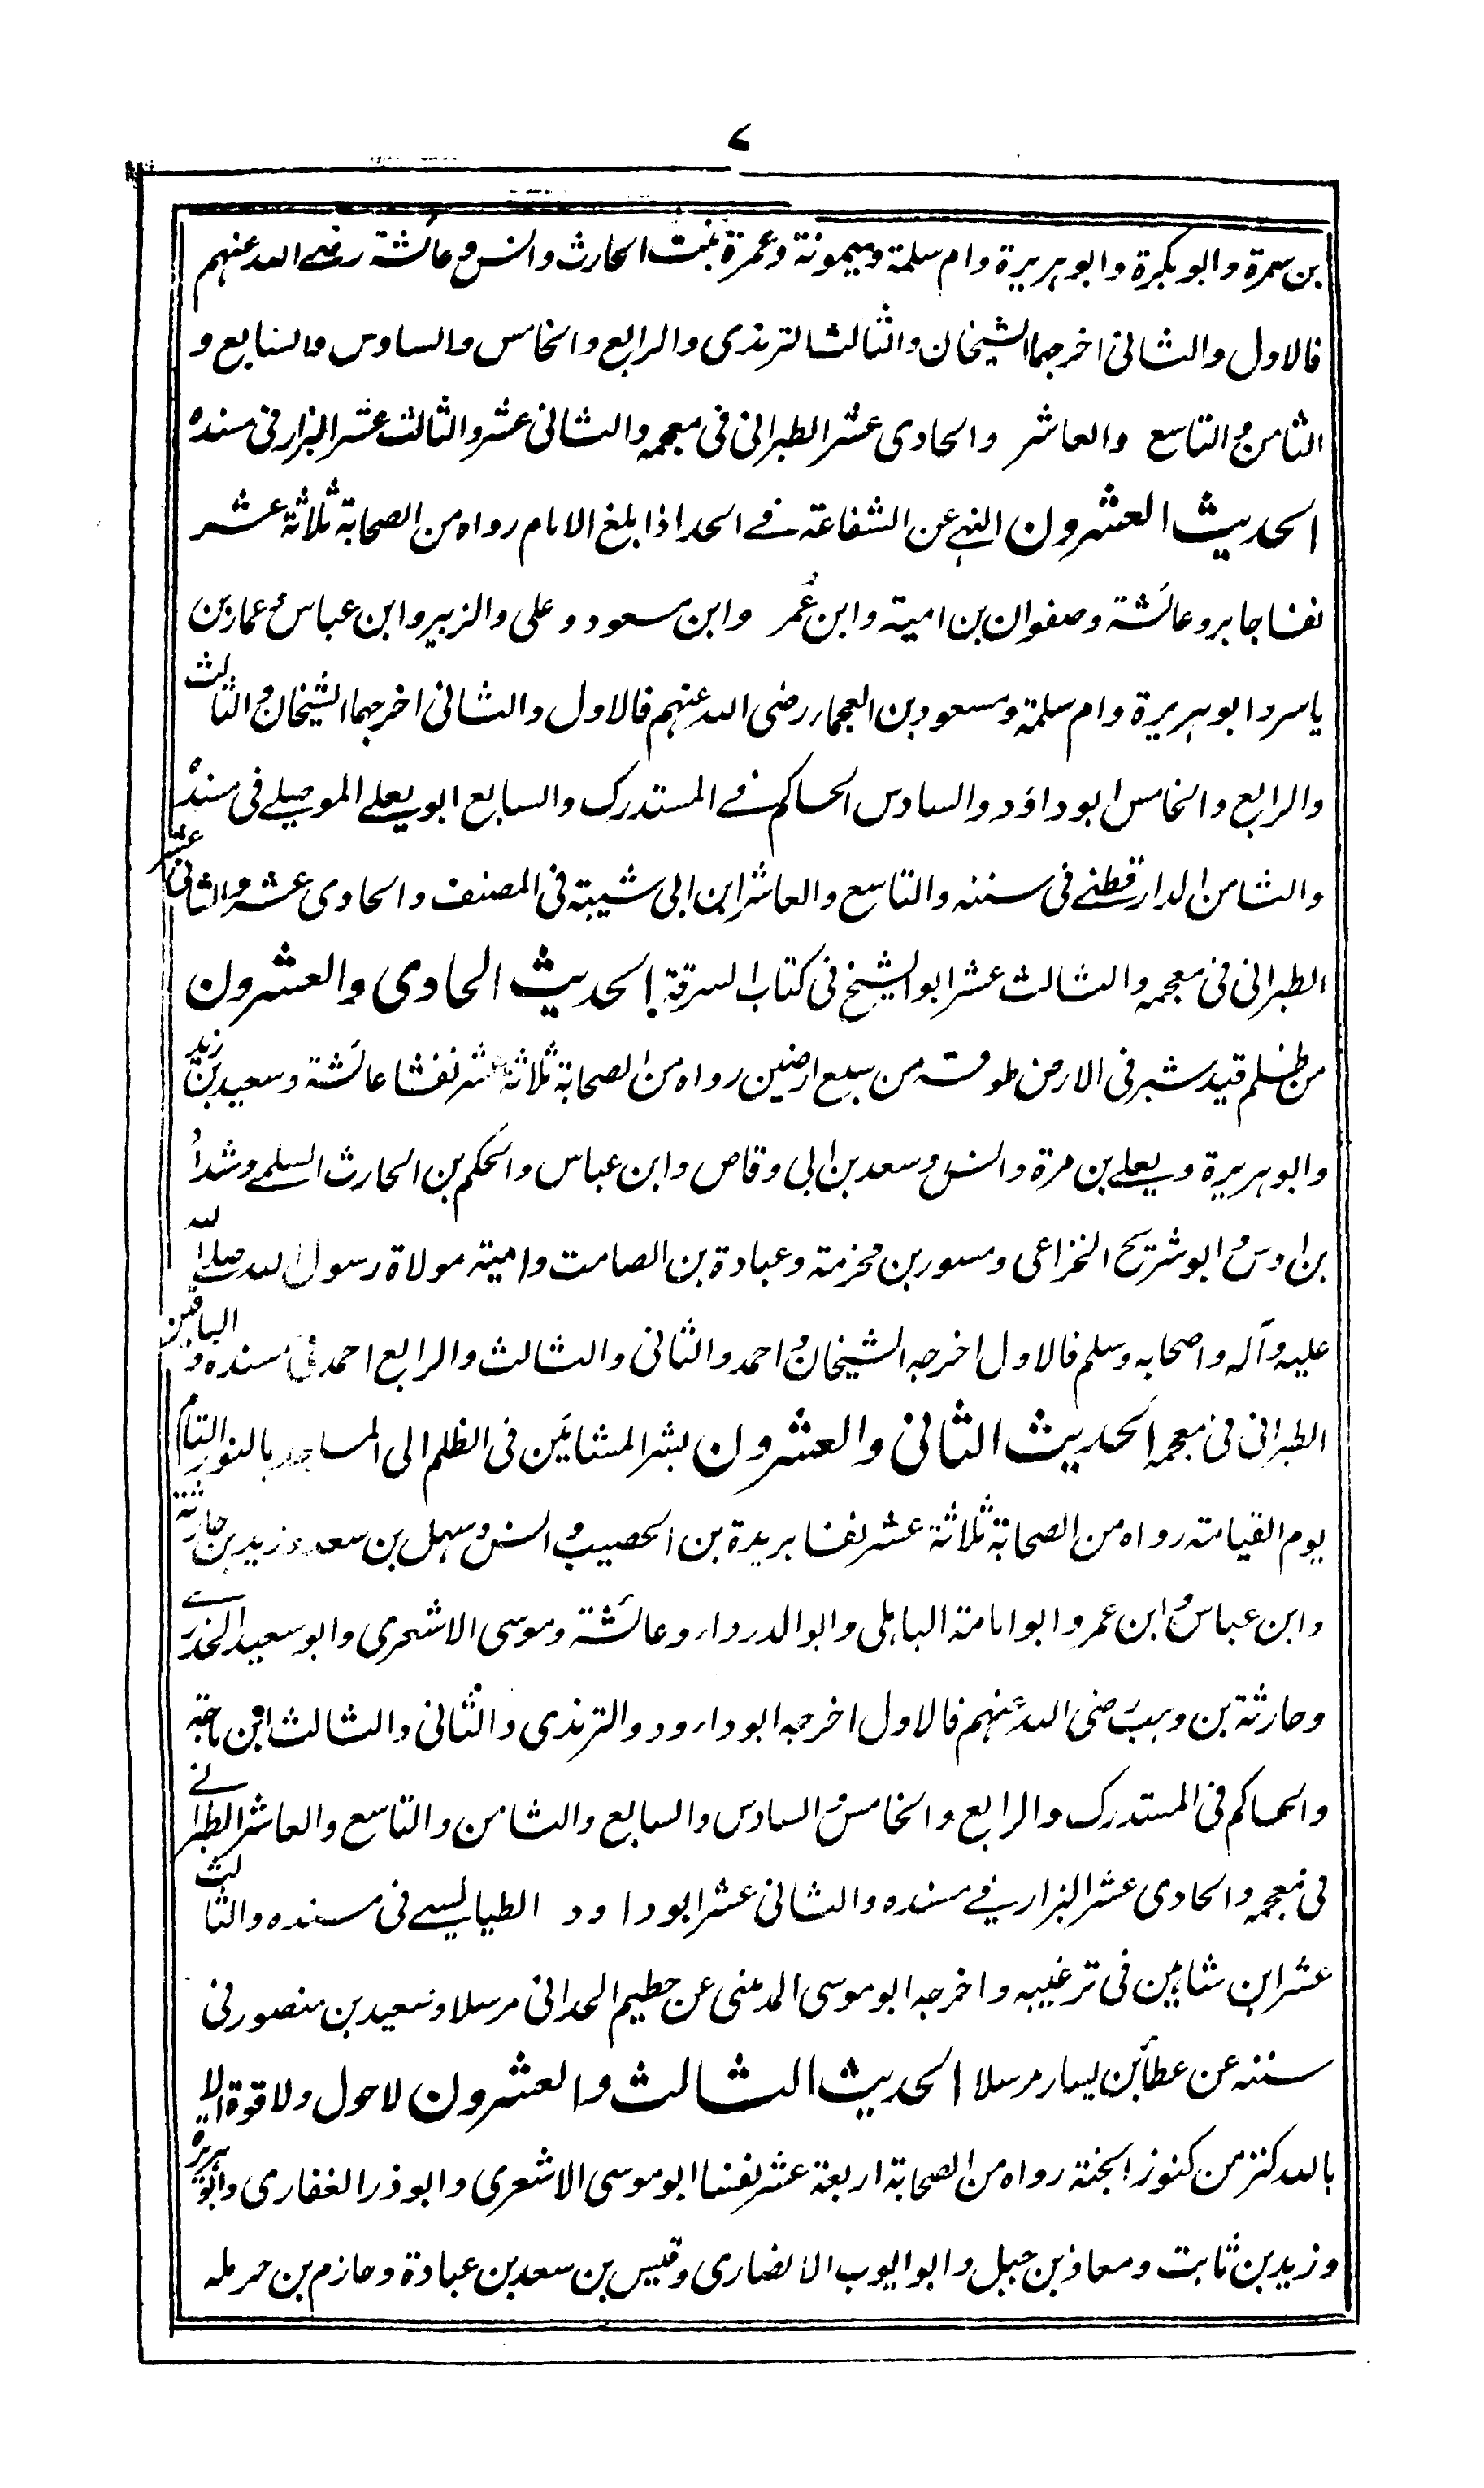 ٧
بن سمرة وابو بكرة وابو هريرة وام سلمة وميمونة وعمرة بنت الحارث وانس وعائشة رضي الله عنهم
فالاول والثاني اخرجهما الشيخان والثالث الترمذي والرابع والخامس والسادس والسابع و
الثامن والتاسع والعاشر والحادي عشر الطبراني في معجمه والثاني عشر والثالث عشر البزار في مسنده
الحديث العشرون النهي عن الشفاعة في الحد اذا بلغ الامام رواه من الصحابة ثلاثة عشر
نفسا جابر وعائشة وصفوان بن امية وابن عمر وابن مسعود وعلي والزبير وابن عباس وعمار بن
ياسر وابو هريرة وام سلمة ومسعود بن العجماء رضي الله عنهم فالاول والثاني اخرجهما الشيخان والثالث
والرابع والخامس ابو داؤد والسادس الحاكم في المستدرك والسابع ابو يعلى الموصلي في مسنده
والثامن الدارقطني في سننه والتاسع والعاشر ابن ابي شيبة في المصنف والحادي عشر والثاني عشر
الطبراني في معجمه والثالث عشر ابو الشيخ في كتاب السرقة الحديث الحادي والعشرون
من ظلم قيد شبر في الارض طوقه من سبع ارضين رواه من الصحابة ثلاثة عشر نفسا عائشة وسعيد بن زيد
وابو هريرة ويعلى بن مرة وانس وسعد بن ابي وقاص وابن عباس والحكم بن الحارث السلمي وشداد
بن اوس وابو شريح الخزاعي ومسور بن مخرمة وعبادة بن الصامت وامية مولاة رسول الله صلى الله
عليه وآله واصحابه وسلم فالاول اخرجه الشيخان واحمد والثاني والثالث والرابع احمد في مسنده والباقين
الطبراني في معجمه الحديث الثاني والعشرون بشر المشائين في الظلم الى المساجد بالنور التام
يوم القيامة رواه من الصحابة ثلاثة عشر نفسا بريدة بن الحصيب وانس وسهل بن سعد وزيد بن حارثة
وابن عباس وابن عمر وابو امامة الباهلي وابو الدرداء وعائشة وموسى الاشعري وابو سعيد الخدري
وحارثة بن وهب رضي الله عنهم فالاول اخرجه ابو داود والترمذي والثاني والثالث ابن ماجه
والحاكم في المستدرك والرابع والخامس والسادس والسابع والثامن والتاسع والعاشر الطبراني
في معجمه والحادي عشر البزار في مسنده والثاني عشر ابو داود الطيالسي في مسنده والثالث
عشر ابن شاهين في ترغيبه واخرجه ابو موسى المديني عن حطيم الحداني مرسلا وسعيد بن منصور في
سننه عن عطاء بن يسار مرسلا الحديث الثالث والعشرون لا حول ولا قوة الا
بالله كنز من كنوز الجنة رواه من الصحابة اربعة عشر نفسا ابو موسى الاشعري وابو ذر الغفاري وابو هريرة
وزيد بن ثابت ومعاذ بن جبل وابو ايوب الانصاري وقيس بن سعد بن عبادة وحازم بن حرمله